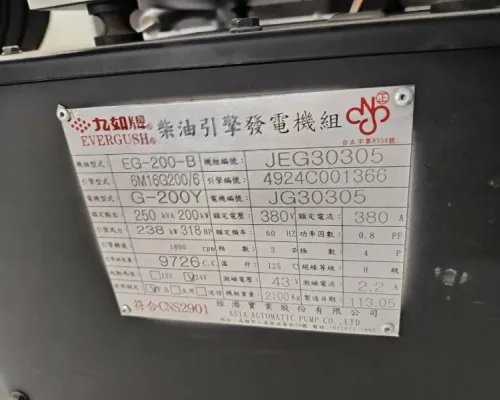 九如牌
EVERGUSH®
柴油引擎發電機組
正
台正字第8334號
機組型式: EG-200-B 機組編號: JEG30305
引擎型式: 6M16G200/6 引擎編號: 4924C001366
電機型式: G-200Y 電機編號: JG30305
額定輸出 250 kVA 200 kW 額定電壓: 380 V 額定電流: 380 A
引擎馬力: 238 kW 318 HP 額定頻率: 60 HZ 功率因數: 0.8 PF
引擎轉速 1800 rpm 相數: 3 Φ 極數: 4 P
9726 C.C 溫升: 125 ℃ 絕緣等級: H 級
12V 24V 激磁電壓: 43 V 激磁電流: 2.2 A
機組重量: 2100 Kg 製造日期: 113.05
符合CNS2901
實業股份有限公司
ASIA AUTOMATIC PUMP CO., LTD.